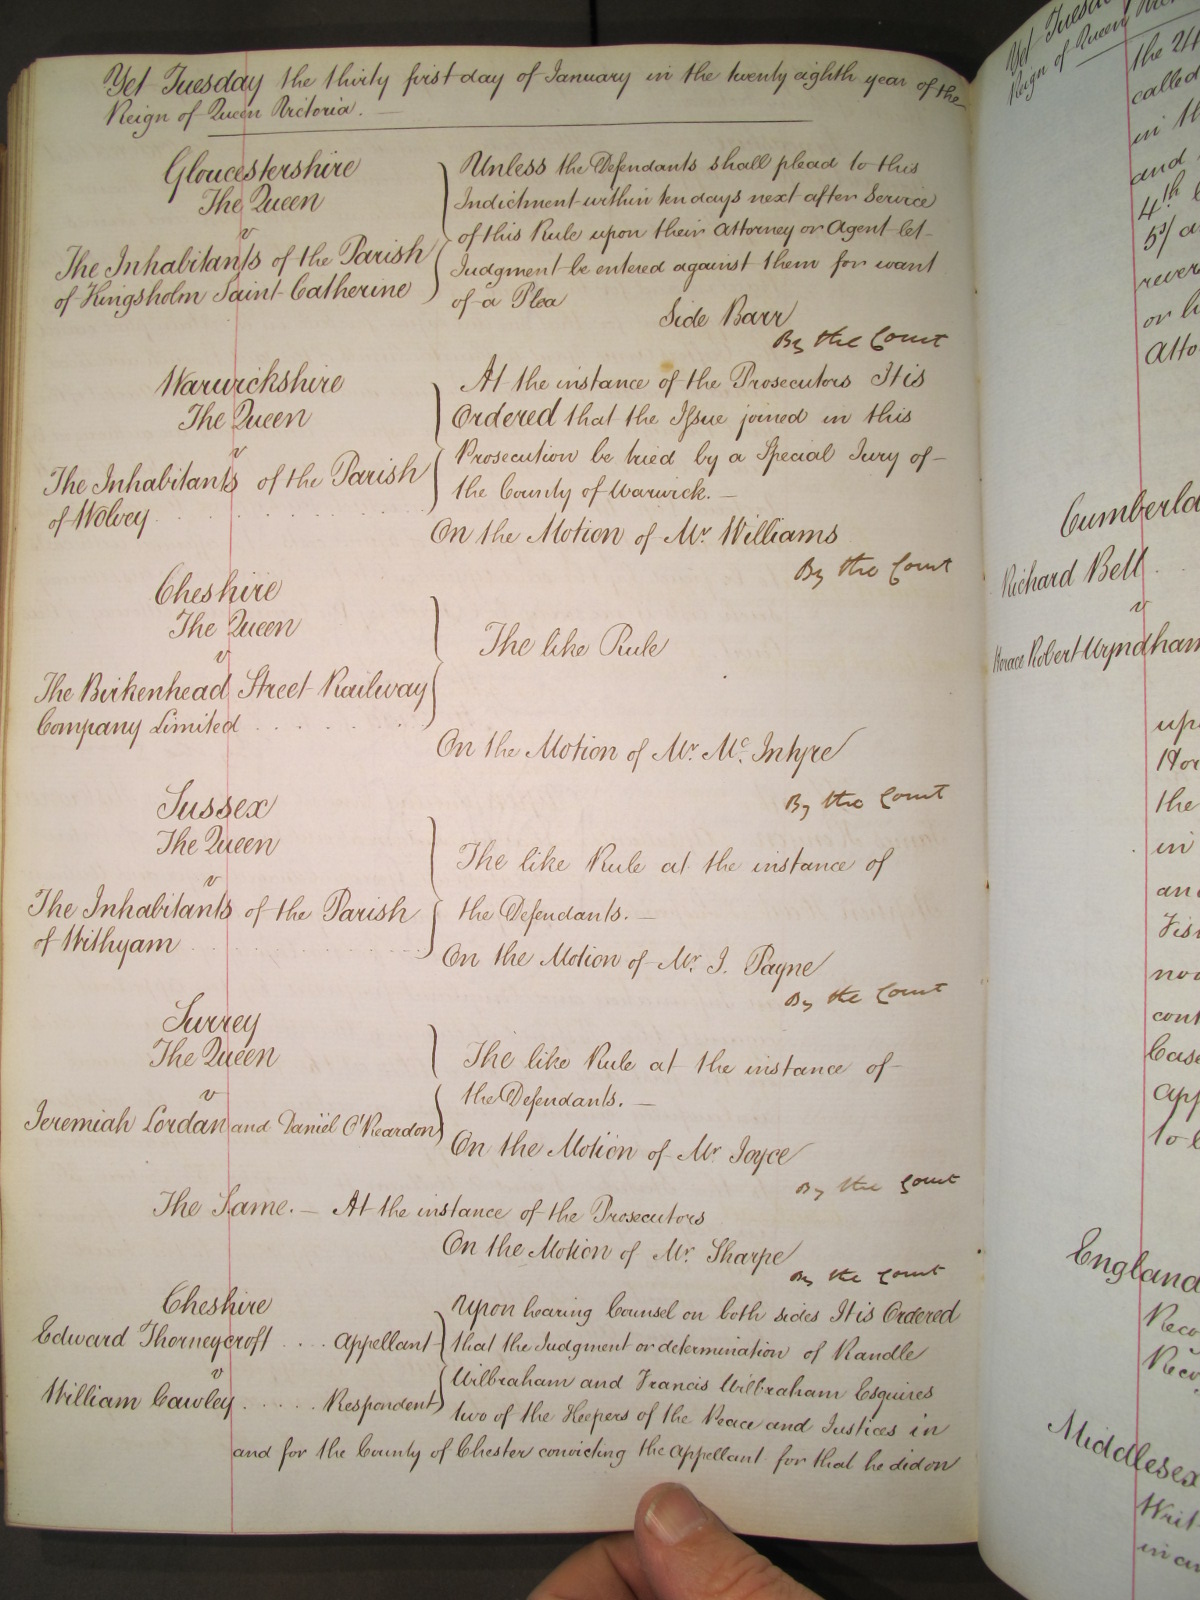 Yet Tuesday the thirty first day of January in the twenty eighth year of the
Reign of Queen Victoria. —
Gloucestershire
The Queen
v
The Inhabitants of the Parish
of Kingsholm Saint Catherine
Unless the Defendants shall plead to this
Indictment within ten days next after Service
of this Rule upon their Attorney or Agent let
Judgment be entered against them for want
of a Plea
Side Barr
By the Court
Warwickshire
The Queen
v
The Inhabitants of the Parish
of Wolvey
At the instance of the Prosecutors It is
Ordered that the Issue joined in this
Prosecution be tried by a Special Jury of
the County of Warwick. —
On the Motion of Mr. Williams
By the Court
Cheshire
The Queen
v
The Birkenhead Street Railway
Company Limited
The like Rule
On the Motion of Mr. Mc. Intyre
By the Court
Sussex
The Queen
v
The Inhabitants of the Parish
of Withyam
The like Rule at the instance of
the Defendants. —
On the Motion of Mr. J. Payne
By the Court
Surrey
The Queen
v
Jeremiah Lordan and Daniel O'Reardon
The like Rule at the instance of
the Defendants. —
On the Motion of Mr Joyce
By the Court
The Same. — At the instance of the Prosecutors
On the Motion of Mr. Sharpe
By the Court
Cheshire
Edward Thorneycroft .... Appellant
v
William Cawley ..... Respondent
Upon hearing Counsel on both sides It is Ordered
that the Judgment or determination of Randle
Wilbraham and Francis Wilbraham Esquires
two of the Keepers of the Peace and Justices in
and for the County of Chester convicting the Appellant for that he did on
Yet Tuesday
Reign of Queen
the 24
called
in th
and
4th
5/ a
rever
or h
Atto
Cumberla
Richard Bell
v
Horace Robert Wyndham
up
Hor
the
in
an
Fis
no
cont
Case
App
to b
England
Reco
Reco
Middlesex
Writ
in an